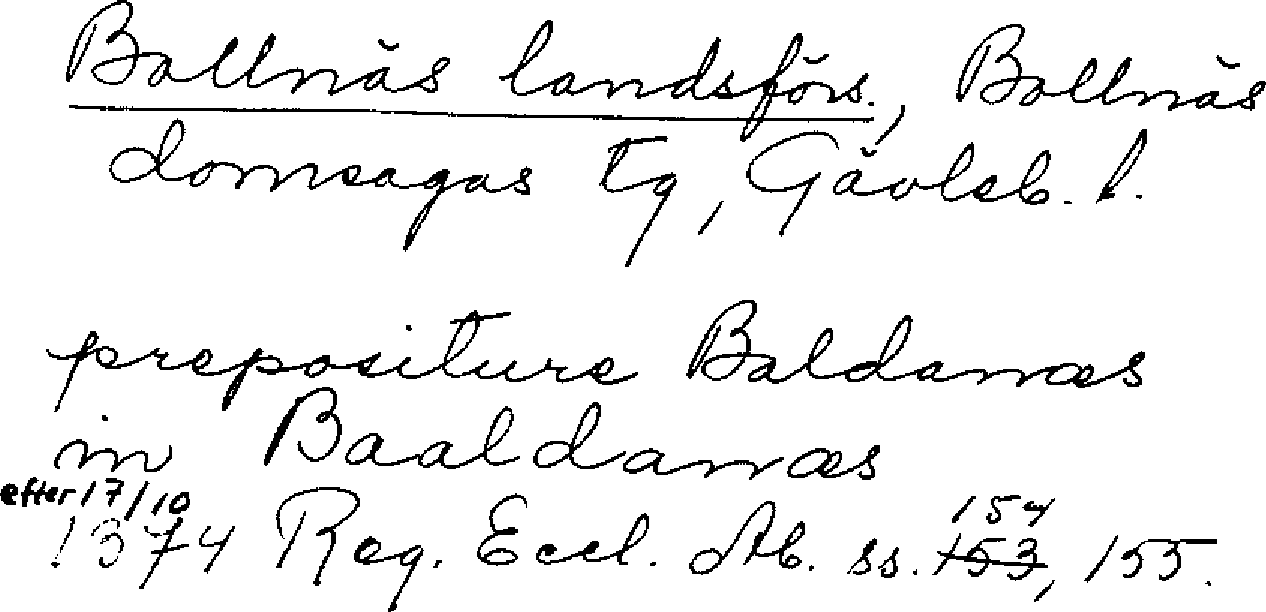 Bollnäs landsförs., Bollnäs
domsagas tg, Gävleb. l.
prepositure Baldanæs
in Baaldanæs
efter 17/10
1374 Reg. Eccl. Ab. ss. 153, 155.
154